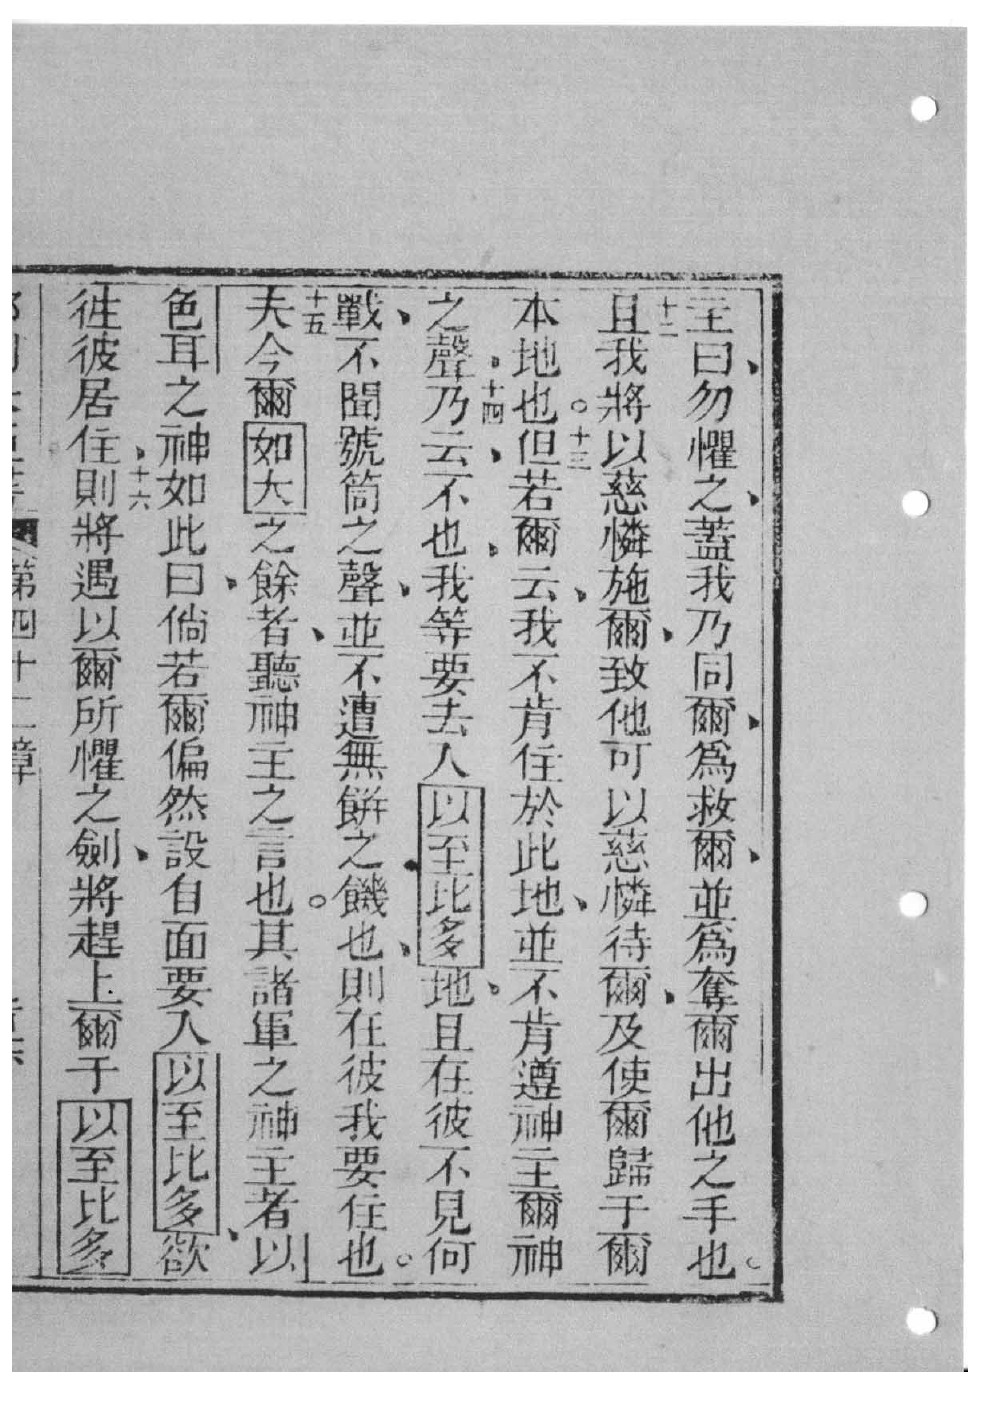 主曰勿懼之蓋我乃同爾爲救爾並爲奪爾出他之手也。
十二且我將以慈憐施爾致他可以慈憐待爾及使爾歸于爾
本地也。十三但若爾云我不肯住於此地並不肯遵神主爾神
之聲十四乃云不也我等要去人以至比多地且在彼不見何
戰不聞號筒之聲並不遭無餅之饑也則在彼我要住也。
十五夫今爾如大之餘者聽神主之言也。其諸軍之神主者以
色耳之神如此曰倘若爾偏然設自面要入以至比多欲
徃彼居住十六則將遇以爾所懼之劍將趕上爾于以至比多
第四十二章